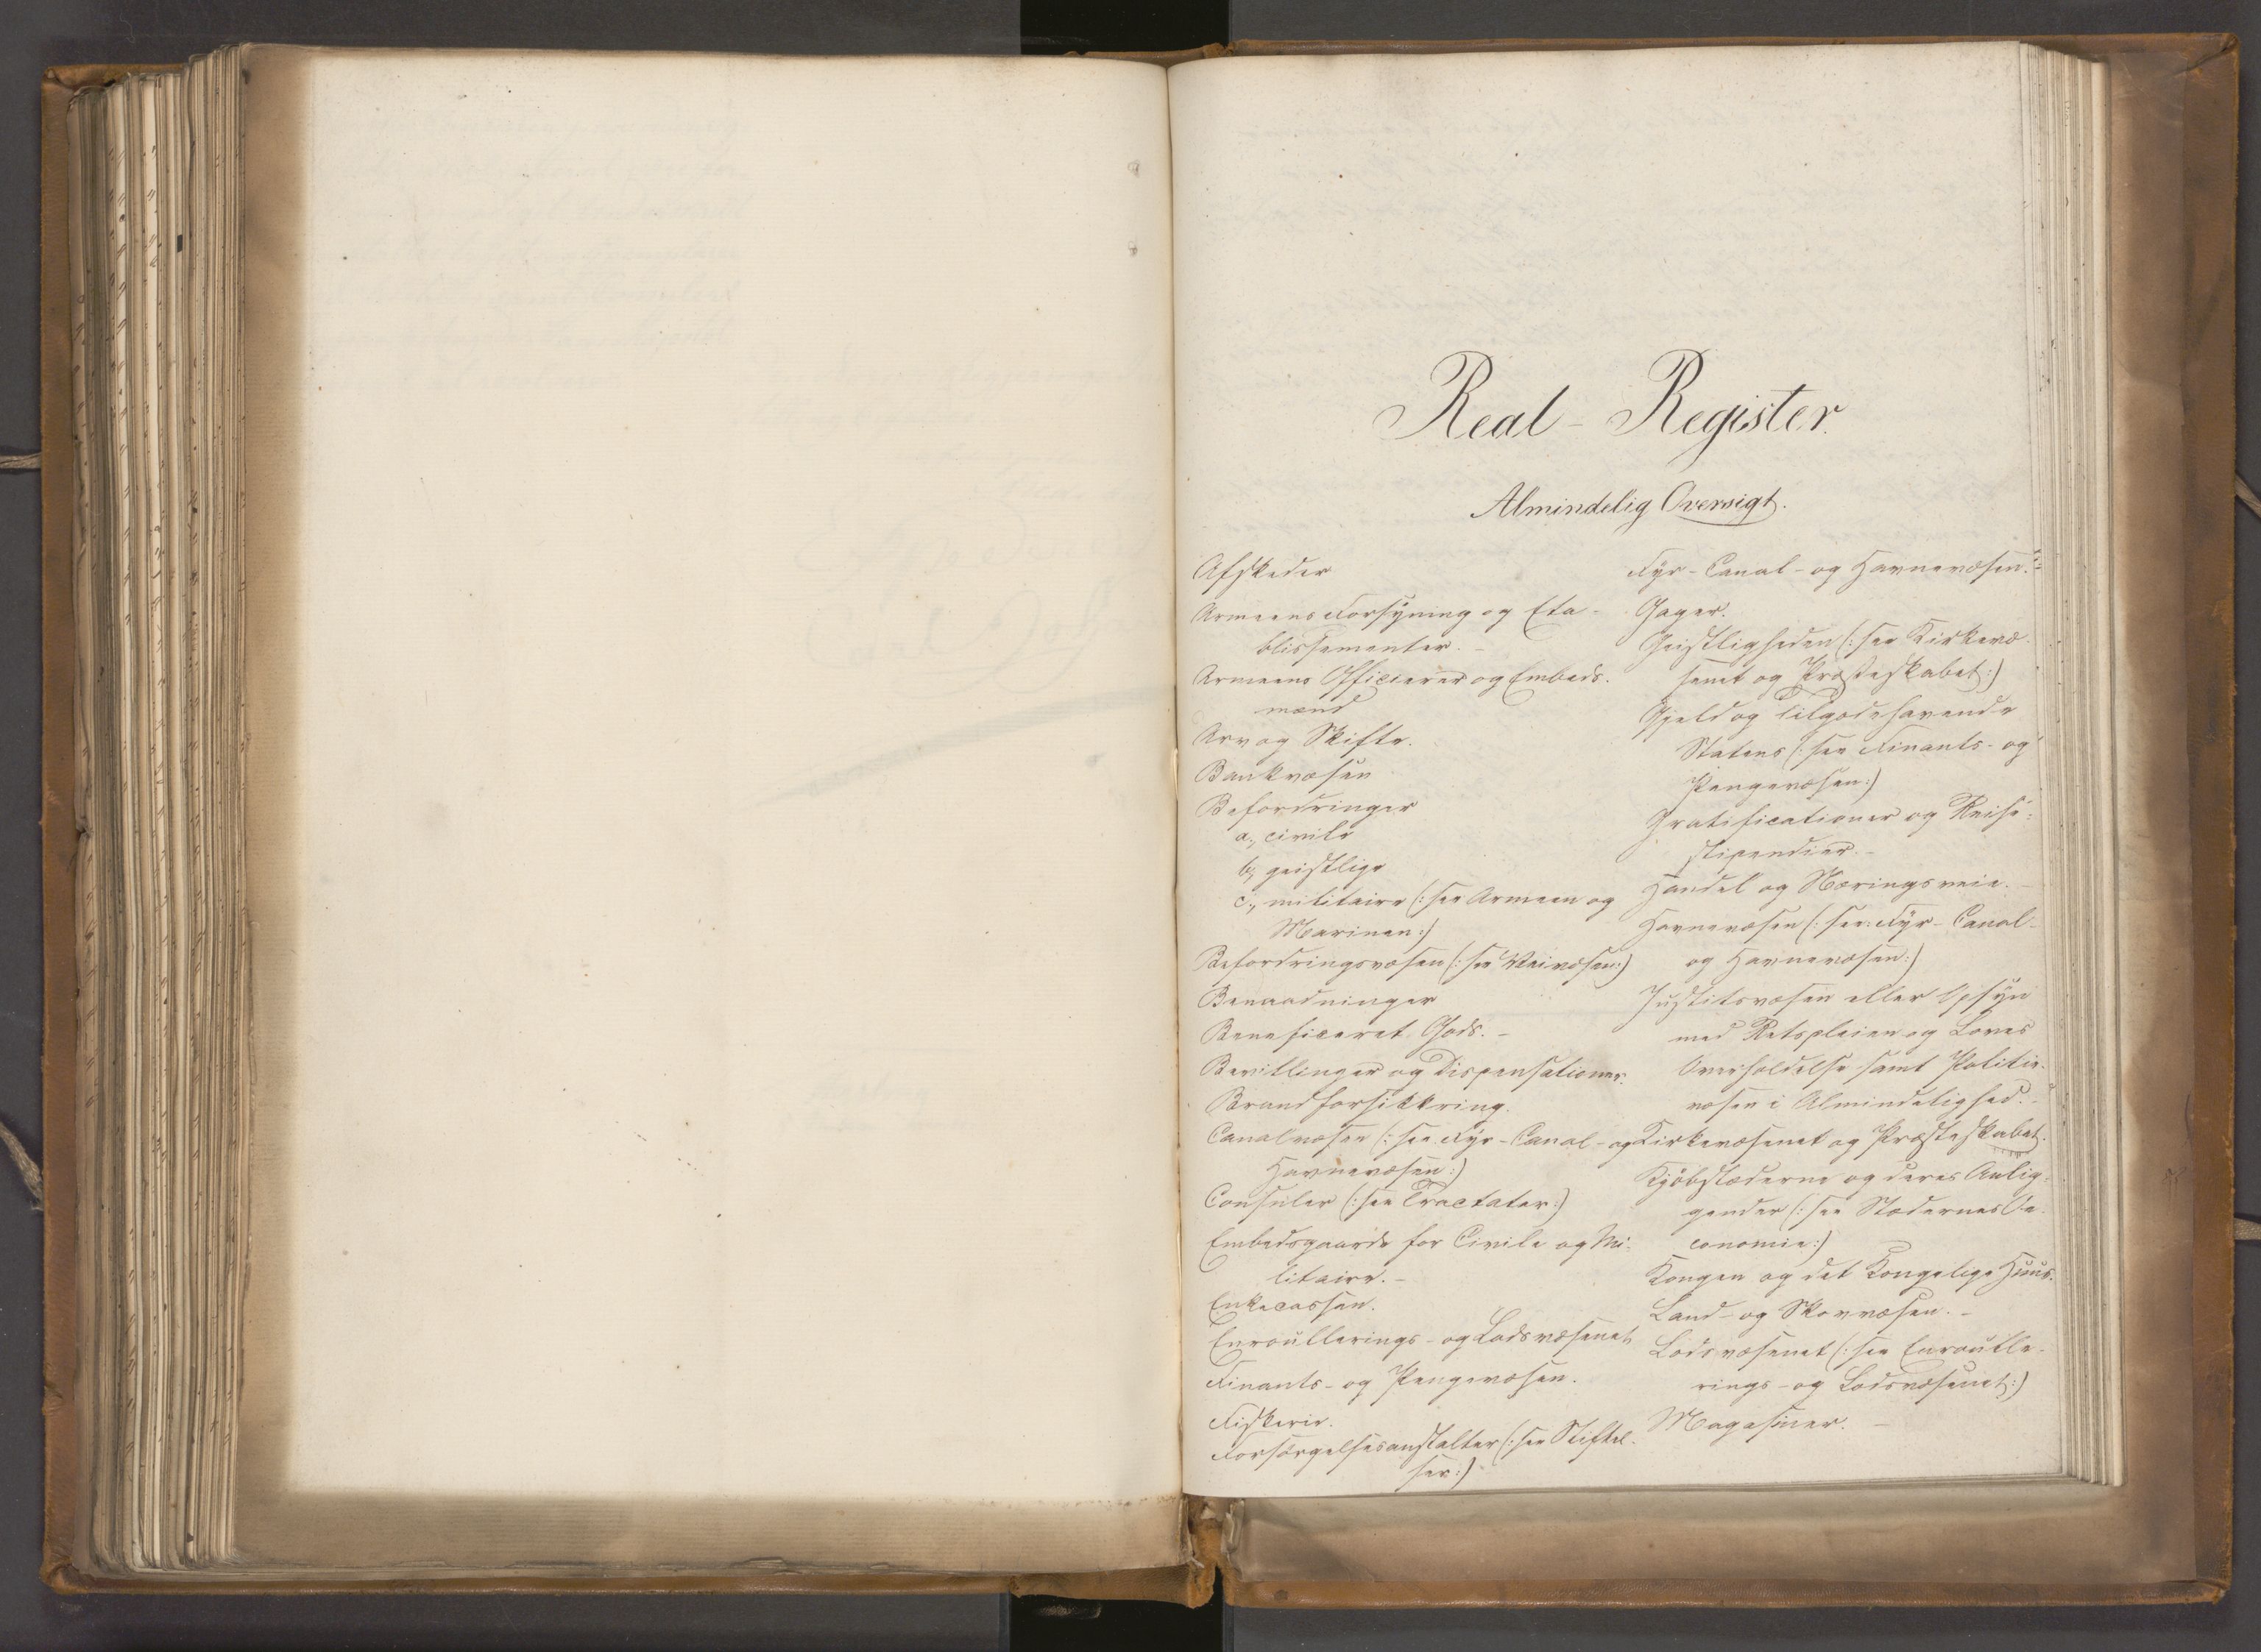 Real-Register.
Almindelig Oversigt.
Afskeder
Armeens Forsyning og Eta-
blissementer.
Armeens Officierer og Embeds-
mænd
Arv og Skifte.
Bankvæsen
Befordringer
a, civile
b, geistlige
c, militaire (: see Armeen og
Marinen :)
Befordringsvæsen (: see Veivæsen :)
Benaadninger
Beneficeret Gods. -
Bevillinger og Dispensationer.
Brandforsikkring.
Canalvæsen (: see Fyr- Canal- og
Havnevæsen :)
Consuler (: see Tractater :)
Embedsgaarde for Civile og Mi-
litaire. -
Enkecassen.
Enroullerings- og Lodsvæsenet
Finants- og Pengevæsen.
Fiskerie.
Forsörgelsesanstalter (: see Stiftel-
ser :)
Fyr- Canal- og Havnevæsen.
Gager.
Geistligheden (: see Kirkevæ-
senet og Præsteskabet :)
Gjeld og Tilgodehavende
Statens (: see Finants- og
Pengevæsen :)
Gratificationer og Reise-
stipendier. -
Handel og Næringsveie. -
Havnevæsen (: see Fyr- Canal-
og Havnevæsen :)
Justitsvæsen eller Opsyn
med Retspleien og Loves
Overholdelse samt Politie-
væsen i Almindelighed. -
Kirkevæsenet og Præsteskabet.
Kjöbstæderne og deres Anlig-
gender (: see Stædernes Oe-
conomie :)
Kongen og det Kongelige Huus.
Land- og Skovvæsen. -
Lodsvæsenet (: see Enroulle-
rings- og Lodsvæsenet :)
Magasiner. -